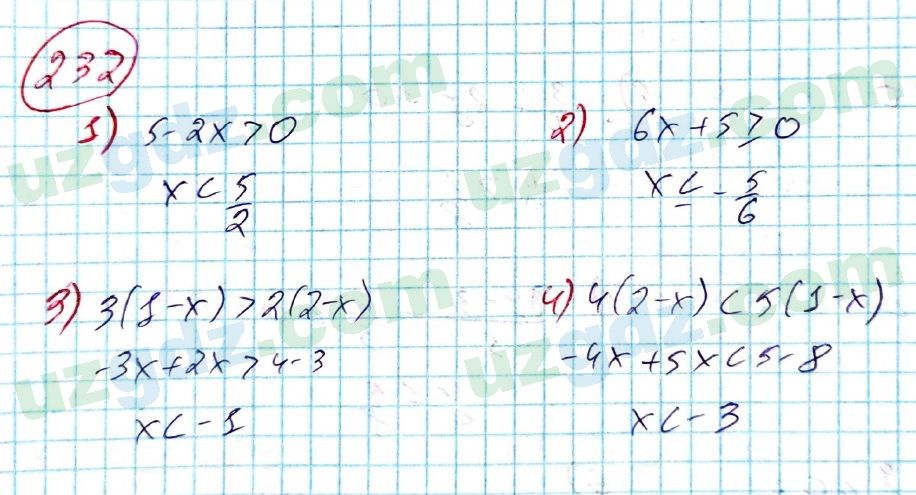 232
1) 5-2x>0
x<5/2
2) 6x+5≥0
x≤-5/6
3) 3(1-x)>2(2-x)
-3x+2x>4-3
x<-1
4) 4(2-x)<5(1-x)
-4x+5x<5-8
x<-3
uzgdz.com
uzgdz.com
uzgdz.com
uzgdz.com